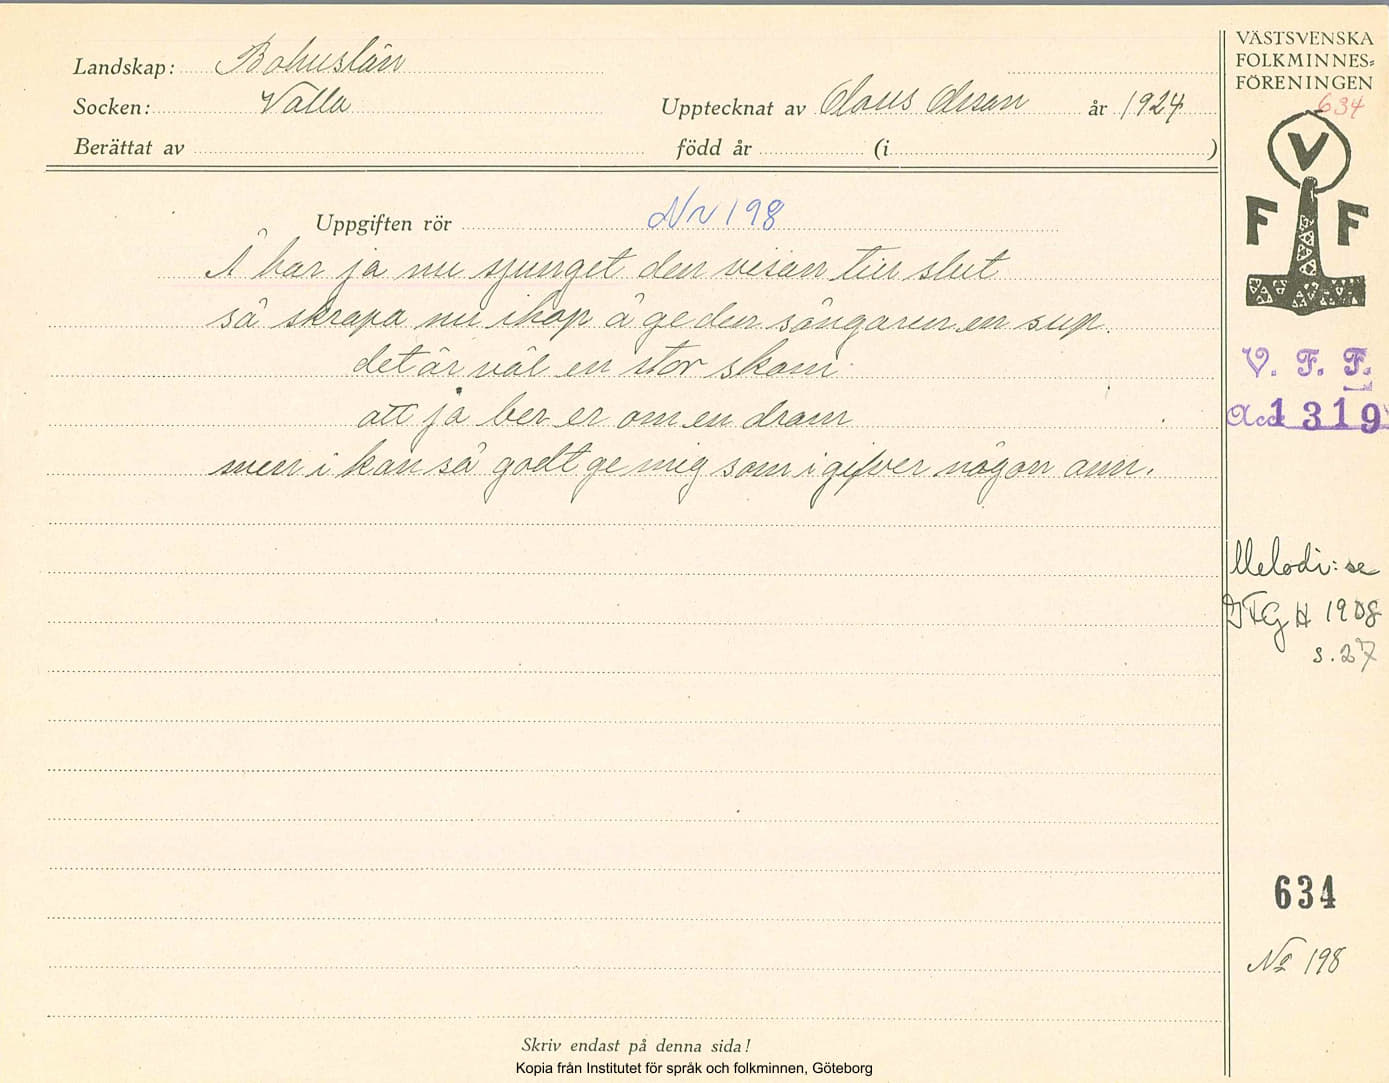 Landskap: Bohuslän
Socken: Valla
Upptecknat av Claus Olsson år 1924
Berättat av
född år (i )
Uppgiften rör Nr 198
Å har ja nu sjunget den visan till slut
så skrapa nu ihop å ge den sångaren en sup.
det är väl en stor skam
att ja ber er om en dram
men i kan så godt ge mig som i gifver någon ann.
Skriv endast på denna sida!
Kopia från Institutet för språk och folkminnen, Göteborg
VÄSTSVENSKA
FOLKMINNES=
FÖRENINGEN
634
V
F F
V. F. F.
Acc 1319
Melodi: se
IFGH 1908
s. 27
634
No 198